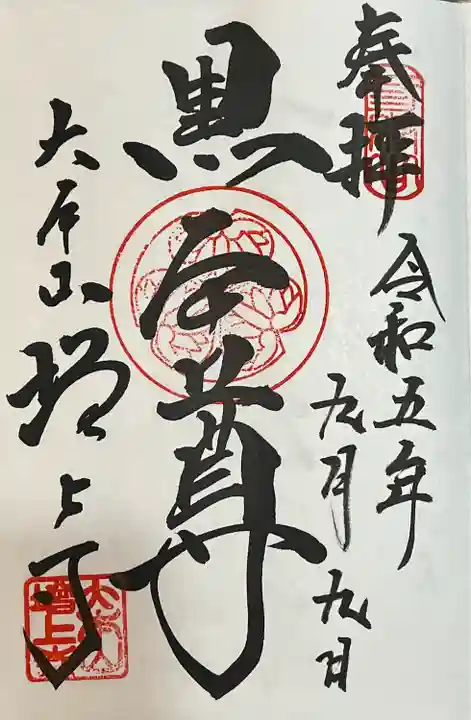 奉拝
令和五年
九月九日
黒本尊
大本山増上寺
大本山
増上寺